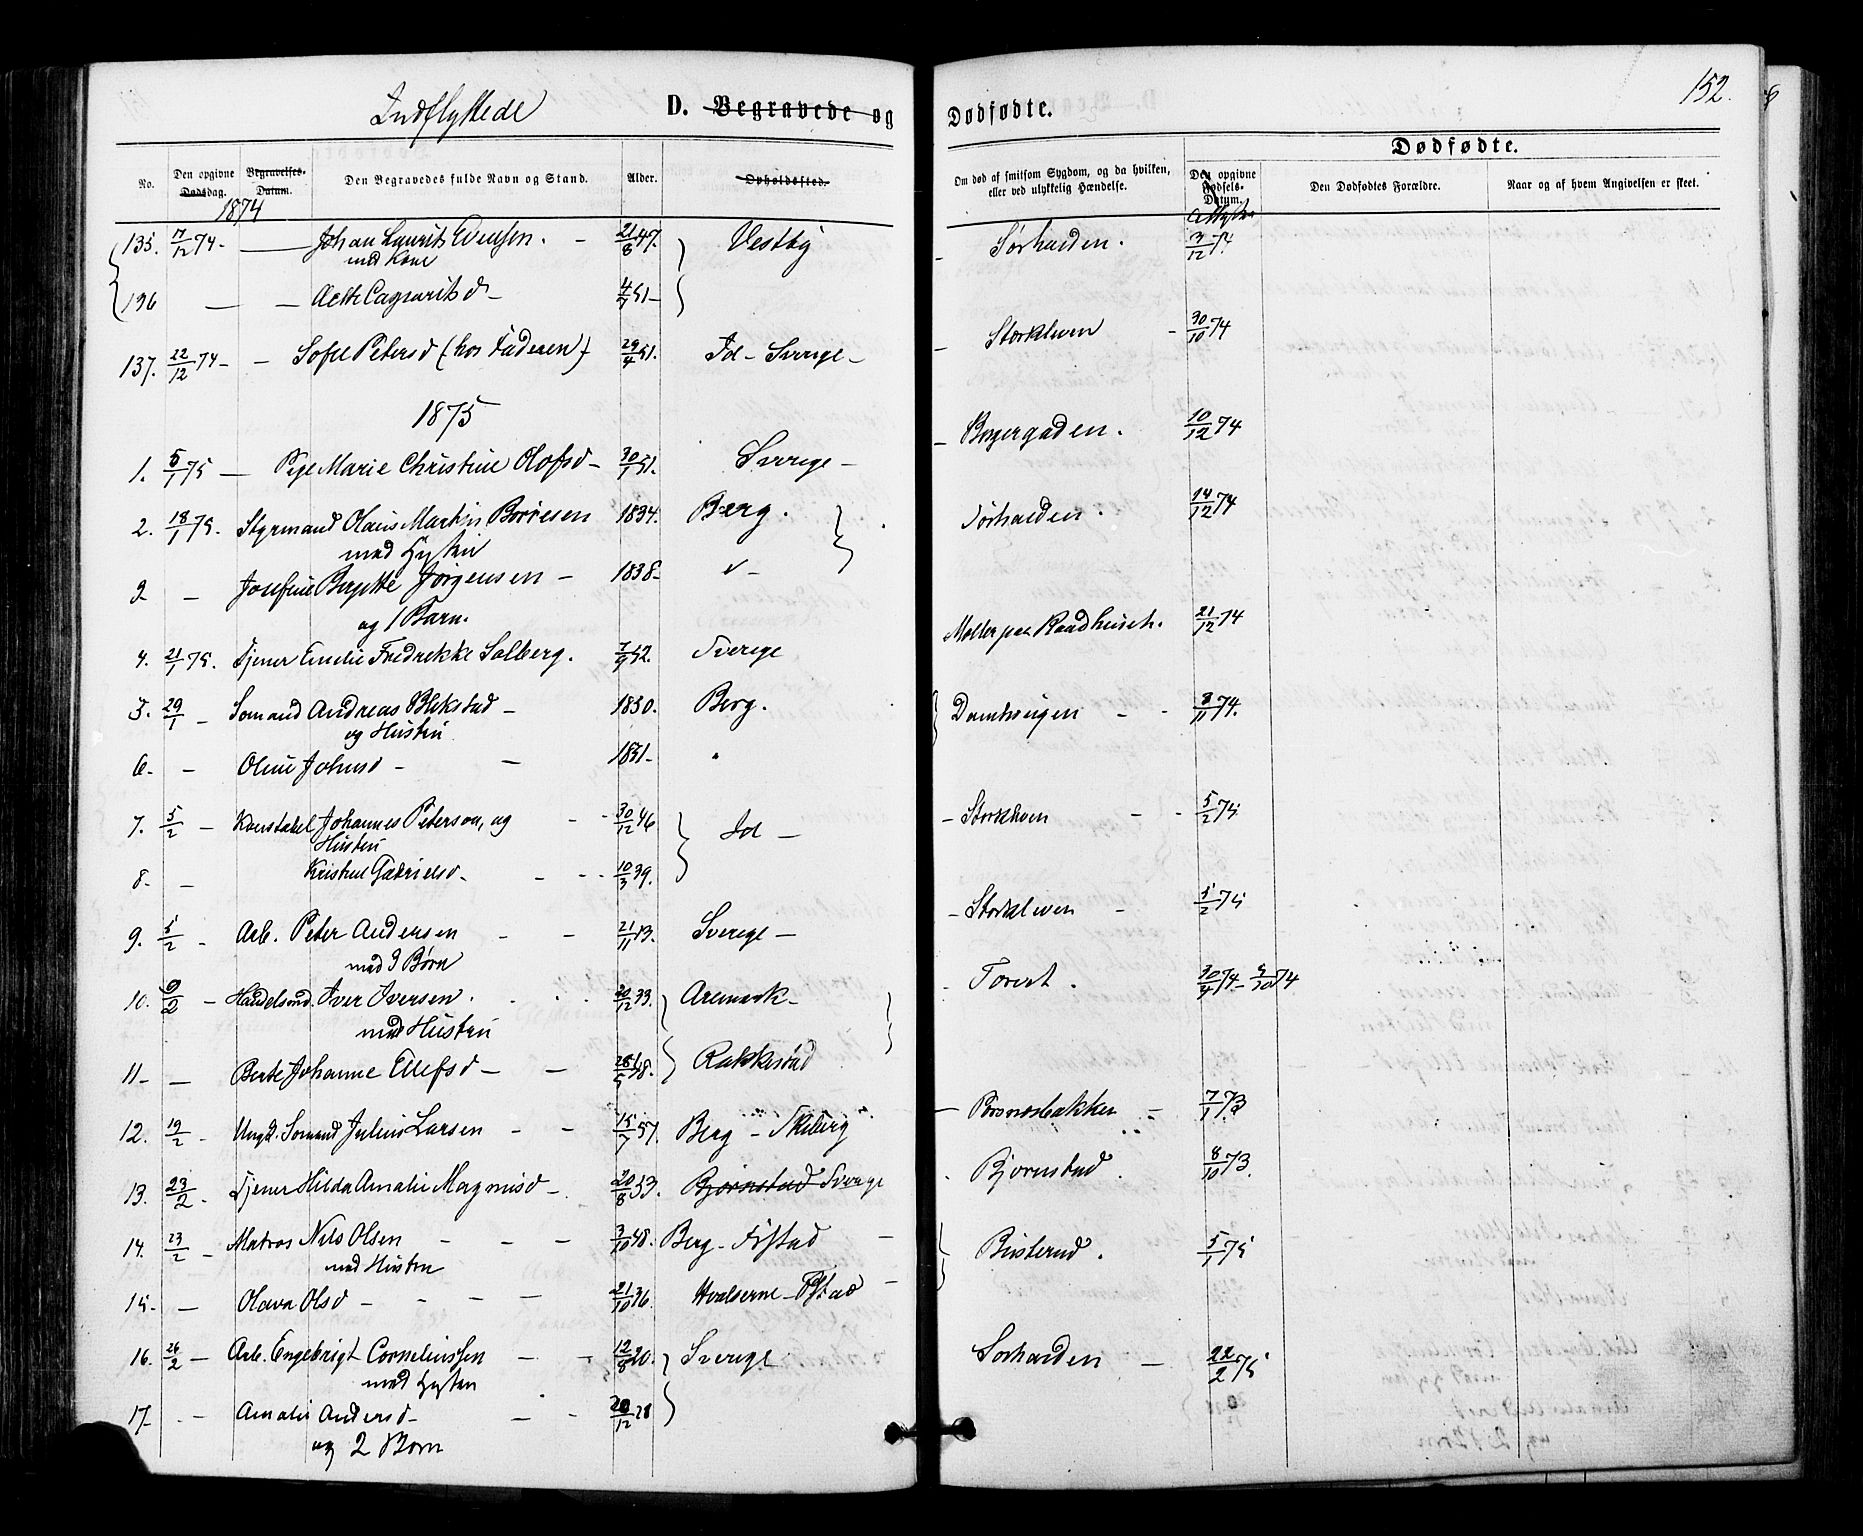 Indflyttede D. Begravede og
No. Den opgivne Dødsdag. Begravelses-Datum. Den Begravedes fulde Navn og Stand. Alder. Opholdssted.
1874
135. 17/12 74 - Johan Laurits Evensen. - 21/8 47. Vestby
med Kone
136 - - Lagaritsd - 4/7 51 -
137. 22/12 74 - - Sofie Petersd (hos Faderen) 29/4 51. Id - Sverige -
1875
1. 5/1 75 - Pige Marie Christine Olofsd - 30/1 51. Sverige -
2. 18/1 75. Styrmand Olaus Martin Börresen 1834. Berg.
med Hustru
3 - Josefine Birgitte Jörgensen - 1838 -
og 1 Barn.
4. 21/1 75. Tjener Emilie Fredrekke Solberg. 7/9 52. Sverige
5. 29/1 - Sömand Andreas Blekstad - 1830. Berg.
og Hustru
6 - - Oline Johnsd - - 1831 -
7. 5/2 - Konstabel Johannes Peterson, og - 30/12 46 Id -
Hustru
8 - - Kristine Gabrielsd. - 10/3 39.
9. 5/2 - Arb. Peter Andersen - - 21/11 13. Sverige -
med 3 Børn
10. 9/2 - Handelsmd. Iver Iversen. 20/12 33. Aremark -
med Hustru
11 - - Berte Johanne Ellefsd - - 48. Rakkestad
12. 19/2 - Ungk. Sömand Julius Larsen - - 15/7 57. Berg - Skiberg
13. 23/2 - Tjener Hilda Amalie Magnusd - 20/8 53. Bjørnstad Sverige
14. 23/2 - Matros Nils Olsen - - - 3/10 48. Berg - Idstad -
med Hustru
15 - - Olava Olsd - - - - 21/10 36. Hvalserne - Idstad -
16. 26/2 - Arb. Engebrigt Corneliussen - - 12/8 20. Sverige
med Hustru
17 - - Amalie Andersd - - - 20/12 28
og 2 Börn
Dødfødte. 152.
Dødfødte.
Om død af smitsom Sygdom, og da hvilken, eller ved ulykkelig Hændelse. Den opgivne Fødsels-Datum. Den Dødfødtes Forældre. Naar og af hvem Angivelsen er skeet.
- Sørhalden. 3/12 74
- Storkleven - 30/10 74
- Borgergaden. 10/12 74
Sørhalden. 14/12 74
Møller paa Raadhuset. 21/12 74
Damhaugen - - 8/11 74.
- Storkleven - - 5/2 75
- Storkleven - 5/2 75
- Torvet. 30/4 74 - 74
- - 7/1 73
Bjørnstad. 8/10 73
Busterud. 5/1 75
Sørhalden - 22/2 75